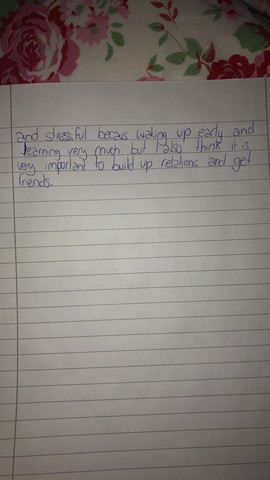 and stressful becaus waking up early and
learning very much but I also think it is
very important to build up relations and get
friends.